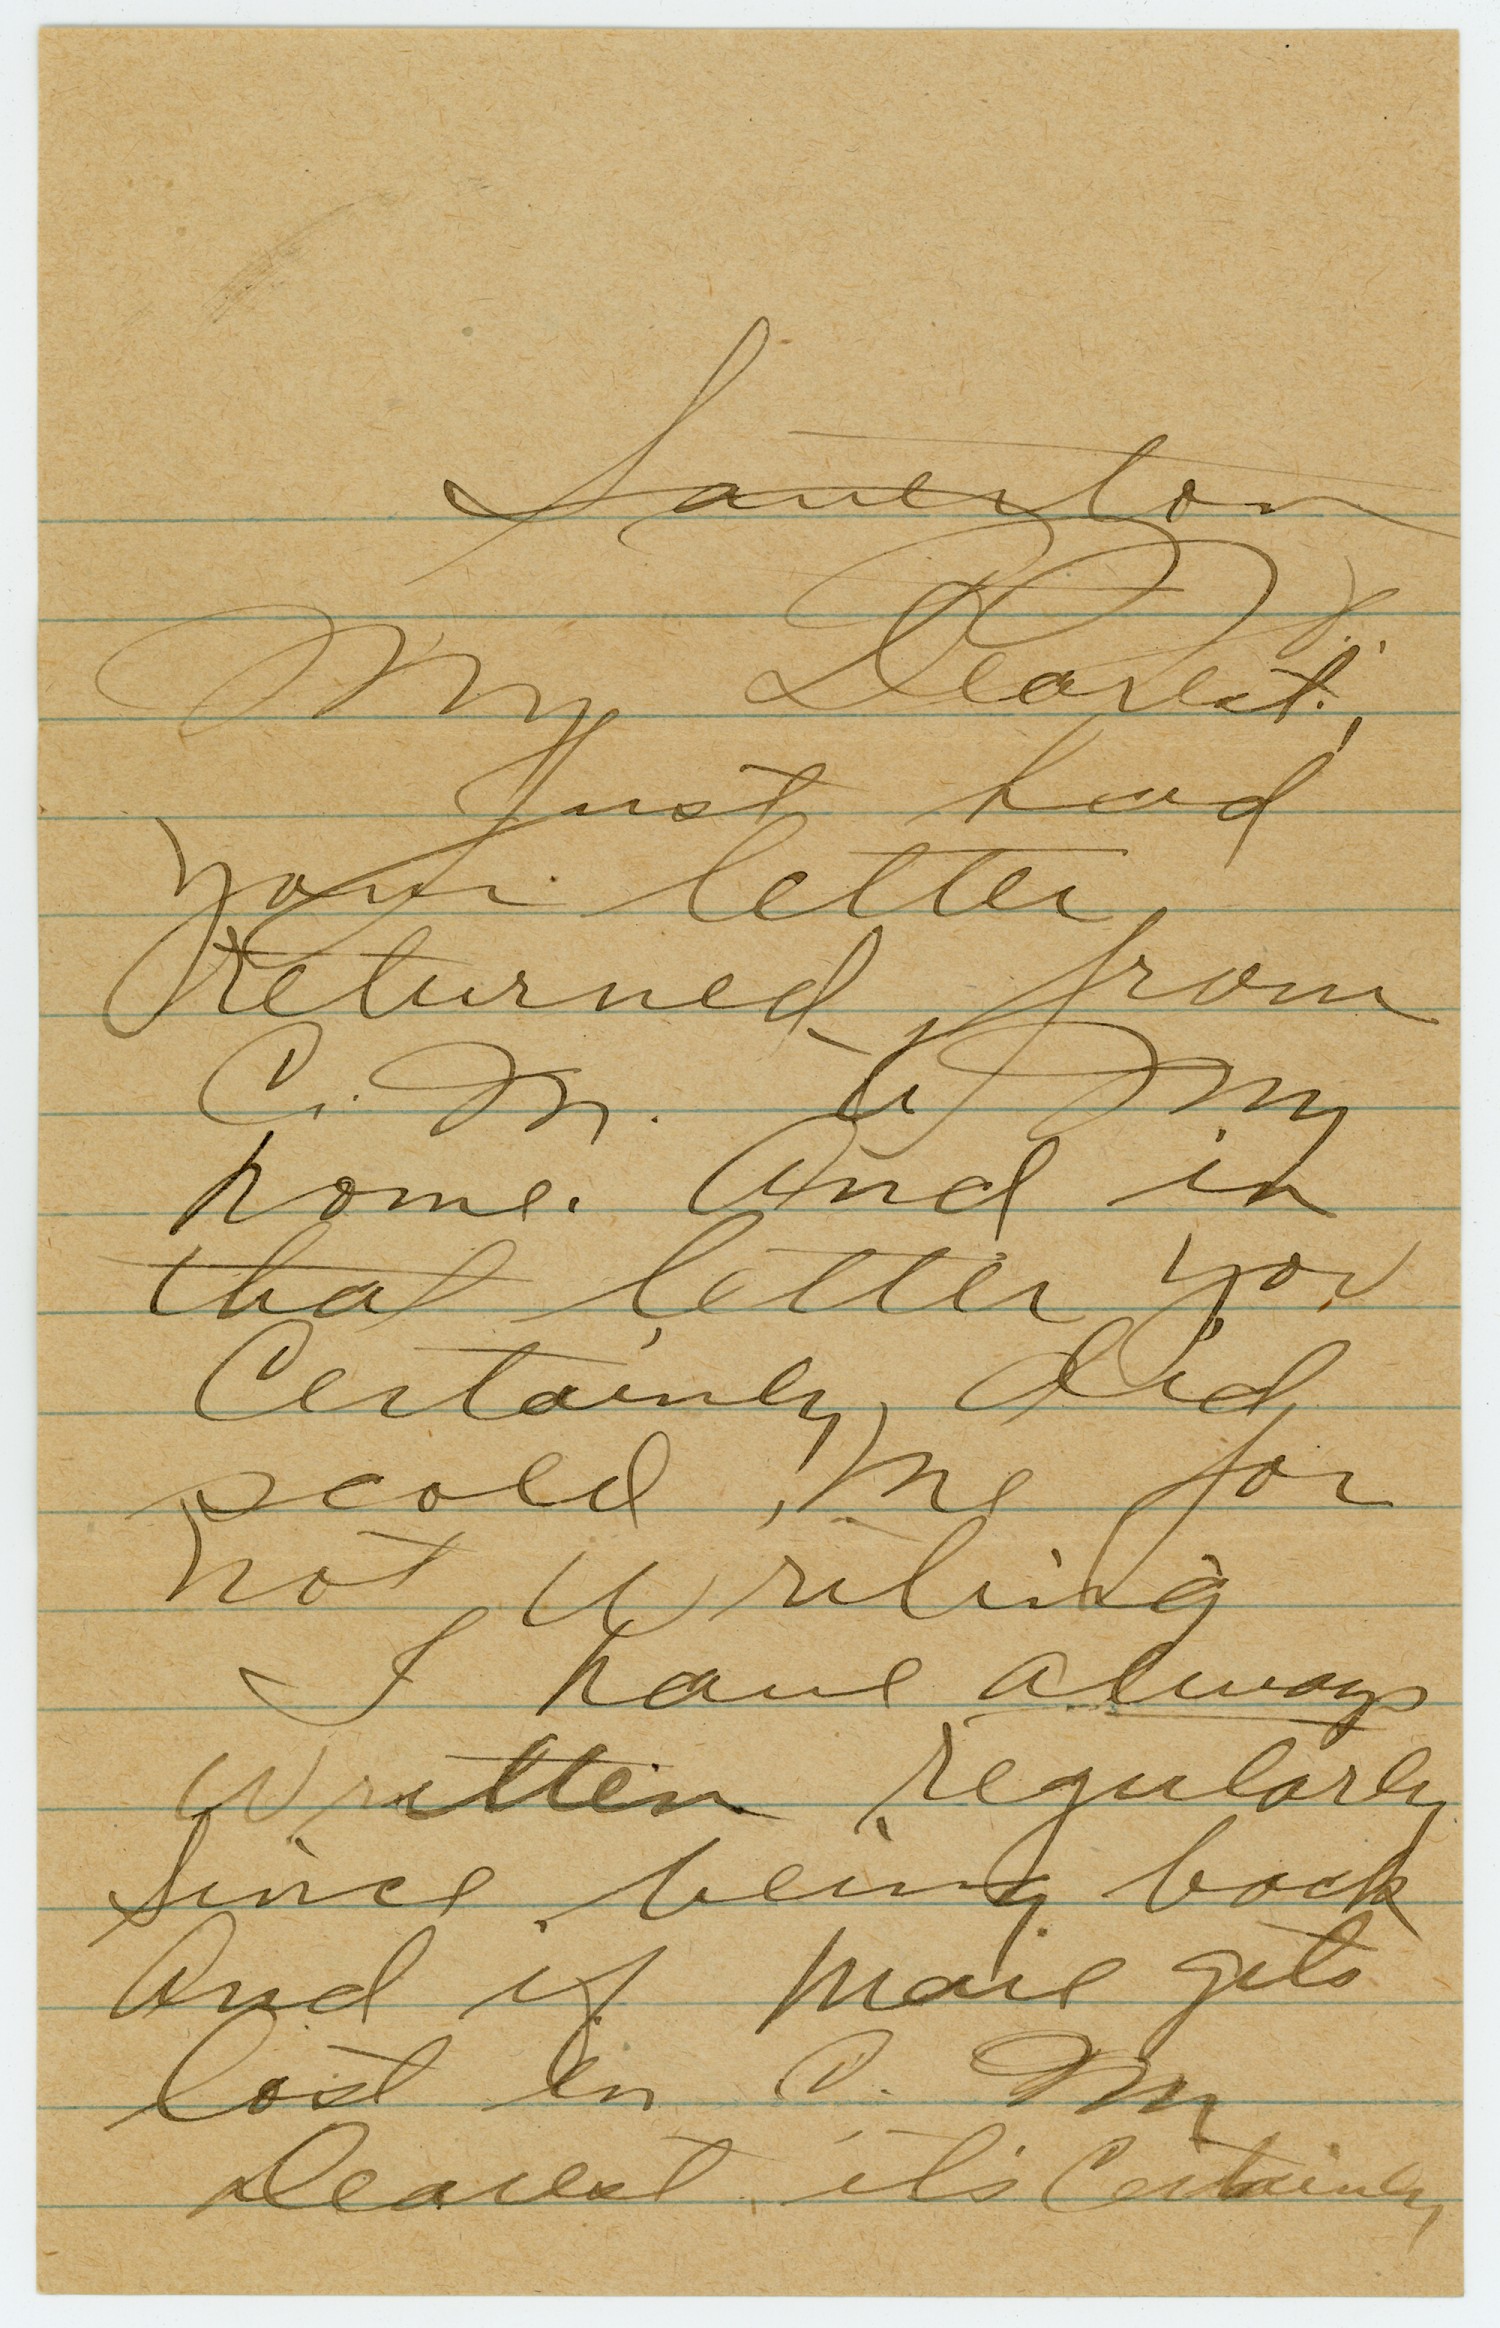 Saverton
My Dearest,
Just had
your letter
returned from
C. M. to My
home. And in
that letter you
Certainly did
scold me for
not writing
I have always
written regularly
Since being back
And if mail gets
lost in C. M
Dearest it's Certainly